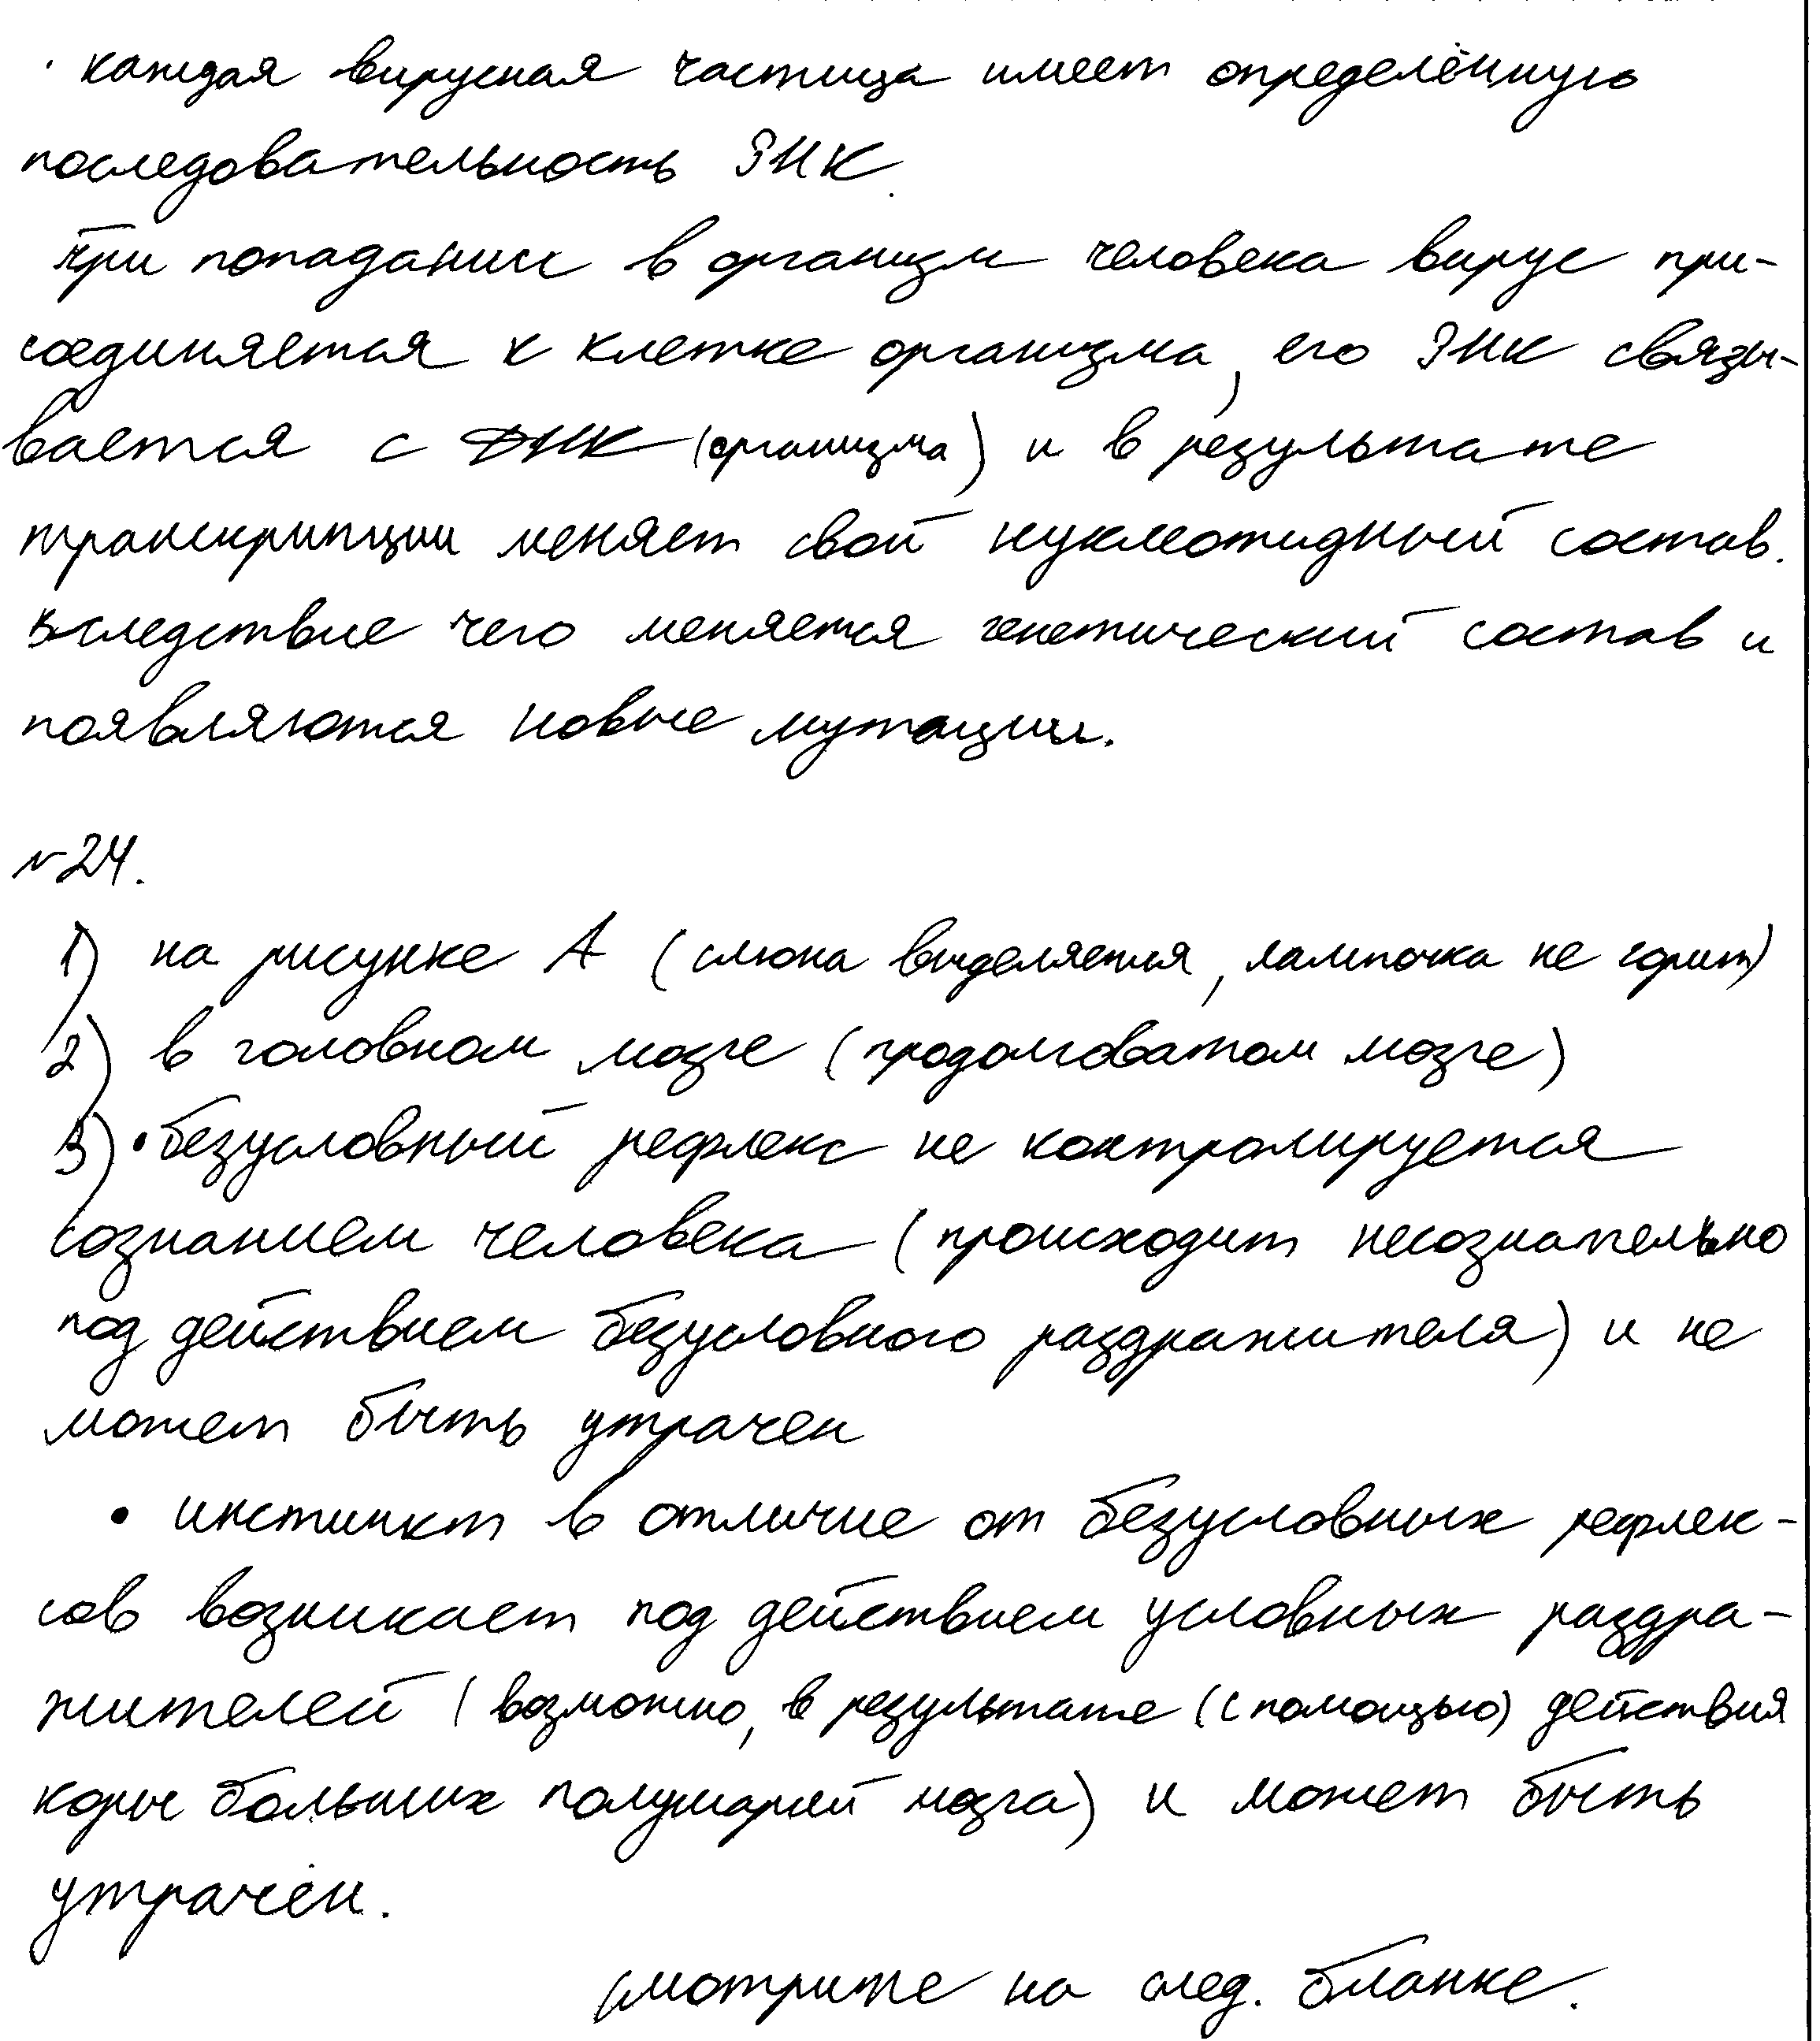 · каждая вирусная частица имеет определённую
последовательность РНК.
При попадании в организм человека вирус при-
соединяется к клетке организма, его РНК связы-
вается с ДНК (организма) и в результате
транскрипции меняет свой нуклеотидный состав.
вследствие чего меняется генетический состав и
появляются новые мутации.
№24.
1) на рисунке А (слюна выделяется, лампочка не горит)
2) в головном мозге (продолговатом мозге)
3) • безусловный рефлекс не контролируется
сознанием человека (происходит несознательно
под действием безусловного раздражителя) и не
может быть утрачен
• инстинкт в отличие от безусловных рефлек-
сов возникает под действием условных раздра-
жителей (возможно, в результате (с помощью) действия
коры больших полушарий мозга) и может быть
утрачен.
смотрите на след. бланке.